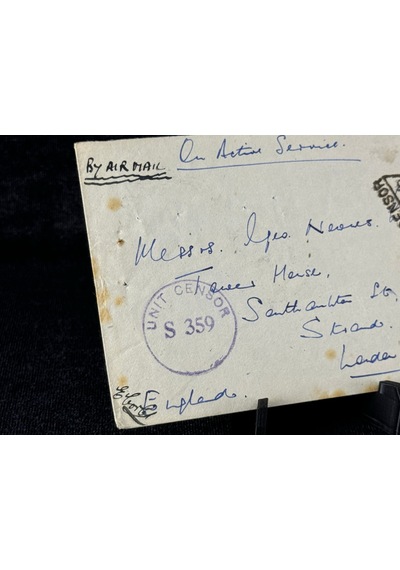 On Active Service.
BY AIR MAIL
CENSOR
Messrs. Geo. Newnes.
Tower House,
Southampton St,
Strand.
London
UNIT CENSOR
S 359
England.